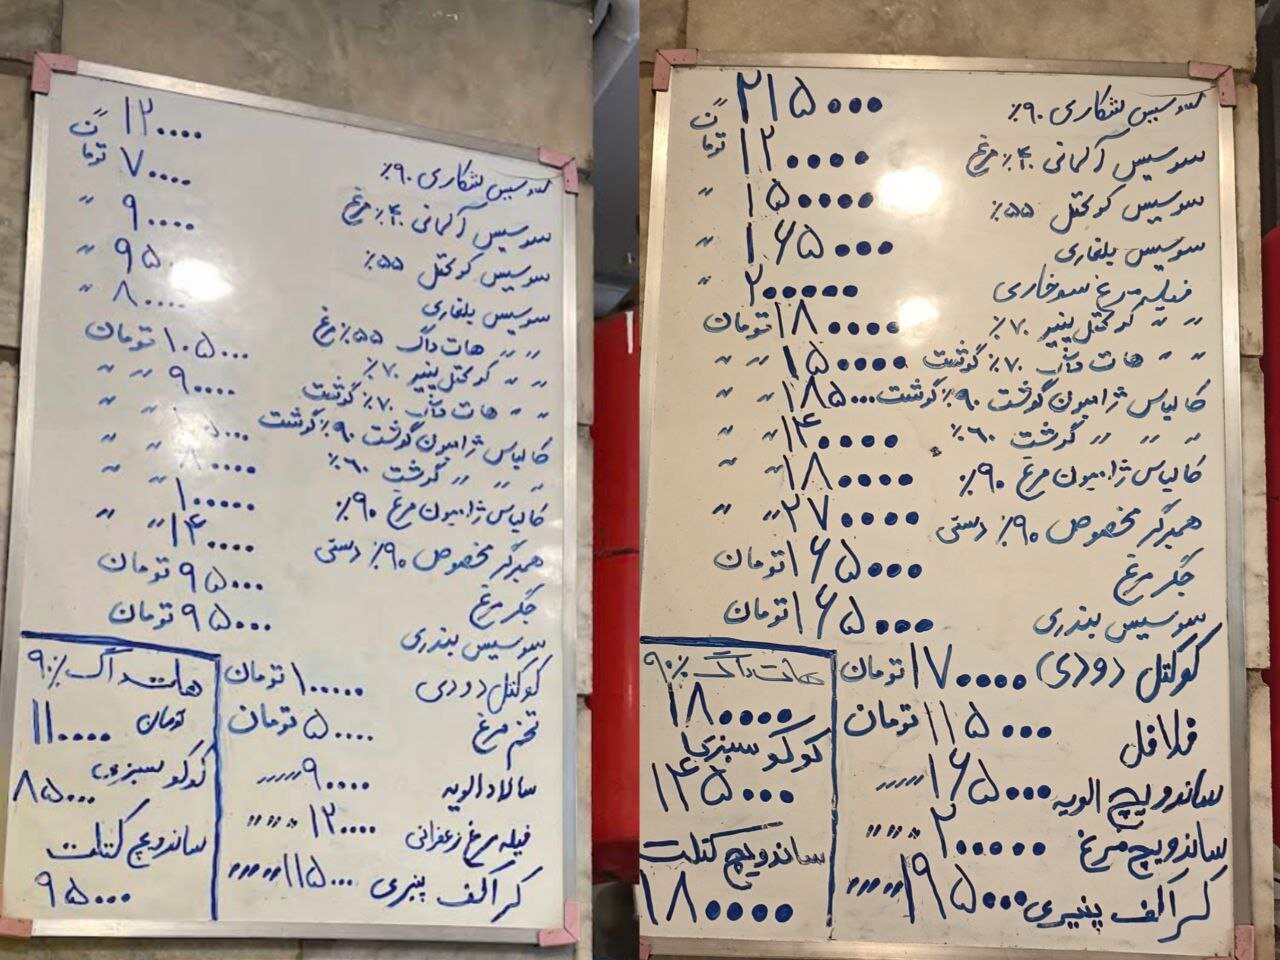 سوسیس شکاری ۹۰٪ ۱۲۰۰۰۰ ت
سوسیس آلمانی ۴۰٪ مرغ ۷۰۰۰۰ تومان
سوسیس کوکتل ۵۵٪ ۹۰۰۰۰ "
سوسیس بلغاری ۹۵۰ "
" " هات داگ ۵۵٪ مرغ ۸۰۰۰۰ "
" " کوکتل پنیر ۷۰٪ ۱۰۵۰۰۰ تومان
" " هات داگ ۷۰٪ گوشت ۹۰۰۰۰ " "
کالباس ژامبون گوشت ۹۰٪ گوشت
" " " گوشت ۶۰٪ ۸۰۰۰۰ " "
کالباس ژامبون مرغ ۹۰٪ ۱۰۰۰۰۰ " "
همبرگر مخصوص ۹۰٪ دستی ۱۴۰۰۰۰ " "
جگر مرغ ۹۵۰۰۰ تومان
سوسیس بندری ۹۵۰۰۰ تومان
کوکتل دودی ۱۰۰۰۰۰ تومان
تخم مرغ ۵۰۰۰۰ تومان
سالاد الویه ۹۰۰۰۰ """"
فیله مرغ زعفرانی ۱۳۰۰۰۰ """"
کراکف پنیری ۱۱۵۰۰۰ """"
هات داگ ۹۰٪
۱۱۰۰۰۰ تومان
کوکو سبزی
۸۵۰۰۰
ساندویچ کتلت
۹۵۰۰۰
سوسیس شکاری ۹۰٪ ۲۱۵۰۰۰ ت
سوسیس آلمانی ۴۰٪ مرغ ۱۲۰۰۰۰ تومان
سوسیس کوکتل ۵۵٪ ۱۵۰۰۰۰ "
سوسیس بلغاری ۱۶۵۰۰۰ "
فیله مرغ سوخاری ۲۰۰۰۰۰ "
" " کوکتل پنیر ۷۰٪ ۱۸۰۰۰۰ تومان
" " هات داگ ۷۰٪ گوشت ۱۵۰۰۰۰ " "
کالباس ژامبون گوشت ۹۰٪ گوشت ۱۸۵۰۰۰ " "
" " " گوشت ۶۰٪ ۱۴۰۰۰۰ " "
کالباس ژامبون مرغ ۹۰٪ ۱۸۰۰۰۰ " "
همبرگر مخصوص ۹۰٪ دستی ۲۷۰۰۰۰ " "
جگر مرغ ۱۶۵۰۰۰ تومان
سوسیس بندری ۱۶۵۰۰۰ تومان
کوکتل دودی ۱۷۰۰۰۰ تومان
فلافل ۱۱۵۰۰۰ تومان
ساندویچ الویه ۱۶۵۰۰۰ """"
ساندویچ مرغ ۲۰۰۰۰۰ """"
کراکف پنیری ۱۹۵۰۰۰ """"
هات داگ ۹۰٪
۱۸۰۰۰۰
کوکو سبزی
۱۴۵۰۰۰
ساندویچ کتلت
۱۸۰۰۰۰